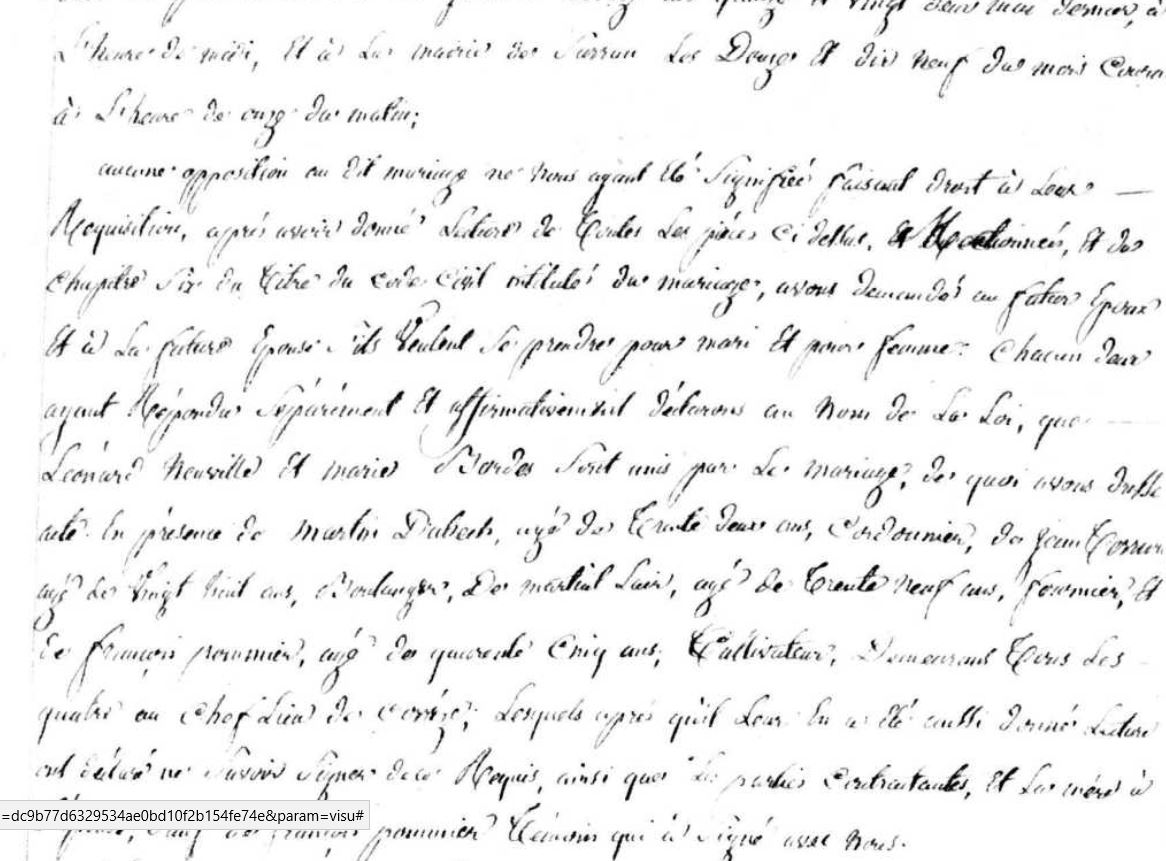 vingt deux mai dernier, à
L'heure de midi, Et à La mairie de Sarran Les Douze Et dix neuf du mois Courant
à L'heure de onze du matin;
aucune opposition au dit mariage ne nous ayant Eté Signifiée faisant droit à Leur
Requisition, après avoir donné Lecture de Toutes Les pièces Ci dessus, Et Mentionnées, Et du
Chapitre Six du Titre du Code Civil intitulé du mariage, avons demandé au futur Epoux
Et à La future Epouse s'ils Veulent Se prendre pour mari Et pour femme. Chacun deux
ayant Répondu Séparément Et affirmativement déclarons au Nom de La Loi, que
Léonard Neuville Et marie Bordes Sont unis par Le mariage, de quoi avons dressé
acte En présence de Martin Dubech, agé de Trente deux ans, Cordonnier, de Jean
agé de Vingt huit ans, Boulanger, De martial Lair, agé de Trente neuf ans, fournier, Et
De françois pommier, agé de quarente Cinq ans, Cultivateur, Demeurans Tous Les
quatre au Chef Lieu de Corrèze; Lesquels après qu'il Leur En a Eté aussi donné Lecture
ont déclaré ne Savoir Signer de ce Requis, ainsi que Les parties Contractantes, Et La mère à
L'épouse, Sauf de françois pommier Témoin qui à Signé avec nous.
=dc9b77d6329534ae0bd10f2b154fe74e&param=visu#